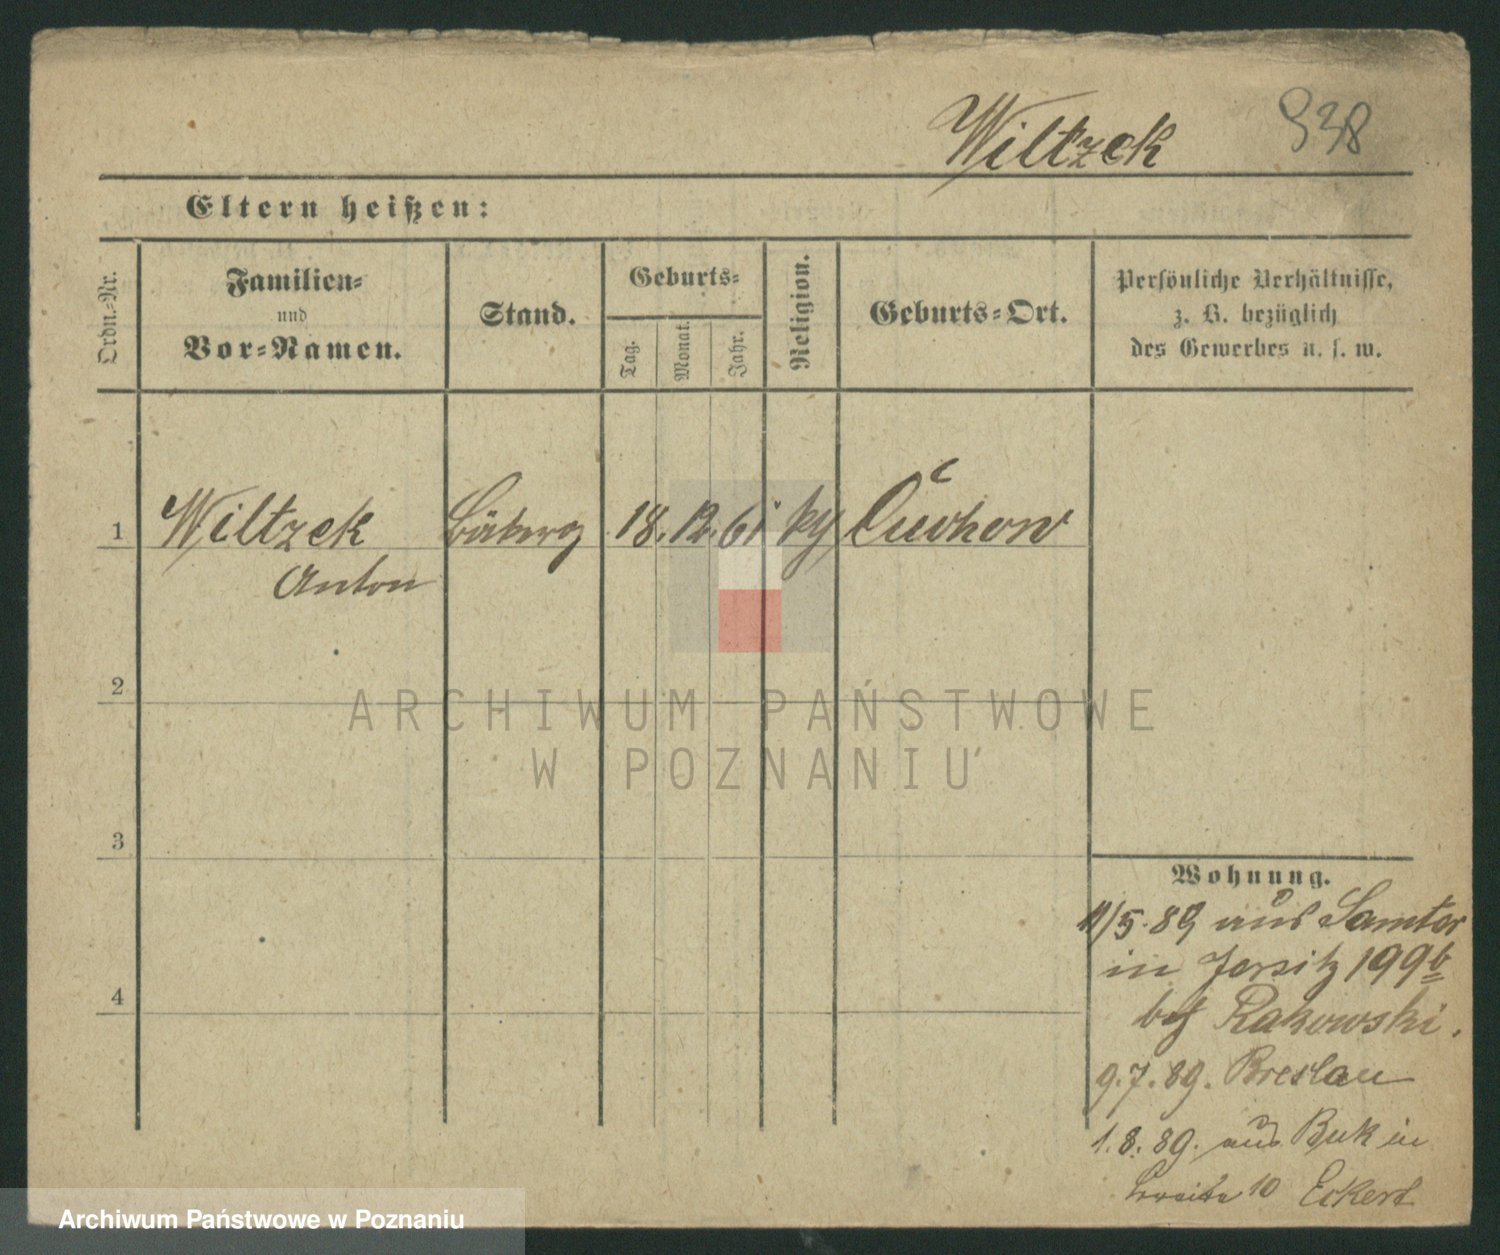 Wiltzek 938
Eltern heißen:
Ordn.-Nr.
Familien-
und
Vor-Namen.
Stand.
Geburts-
Tag.
Monat.
Jahr.
Religion.
Geburts-Ort.
Persönliche Verhältnisse,
z. B. bezüglich
des Gewerbes u. s. w.
1 Wiltzek 18. 12. 61
Anton
2
3
4
Wohnung.
11/5. 89 aus Samter
in Jersitz 199b
bei Rakowski.
9. 7. 89. Breslau
1. 8. 89. aus Buk in
Jersitz 10 Eckert
ARCHIWUM PAŃSTWOWE
W POZNANIU
Archiwum Państwowe w Poznaniu